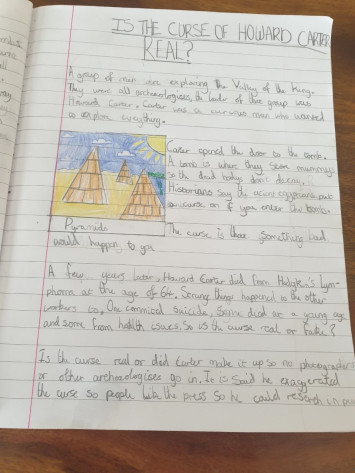 IS THE CURSE OF HOWARD CARTER
REAL?
A group of men are exploring the Valley of the King.
They were all archaeologises, the leader of the group was
Howard Carter. Carter was a curious man who wanted
to explore everything.
Carter opened the door to the tomb.
A tomb is where they store mummys
so the dead bodys don't decay.
say the acient egyptians put
a curse on if you enter the tomb.
Pyramids
The curse is that something bad
would happen to you
A few years later, Howard Carter died from Hodgkin's Lym-
phoma at the age of 64. Strang things happened to the other
workers to. One commiced suicide, Some died at a young age
and some from health issues. So is the curse real or fake?
Is the curse real or did Carter make it up so no photographers
or other archaeologises go in. It is said he exaggerated
the curse so people like the press so he could research in